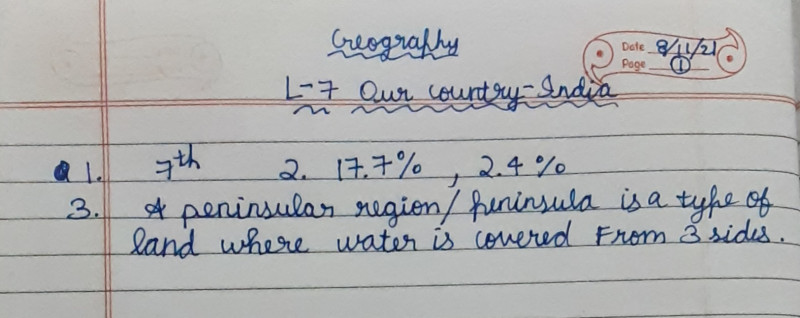 Geography
Date 8/11/21
Page 1
L-7 Our country-India
Q1. 7th 2. 17.7%, 2.4%
3. A peninsular region/peninsula is a type of
land where water is covered From 3 sides.